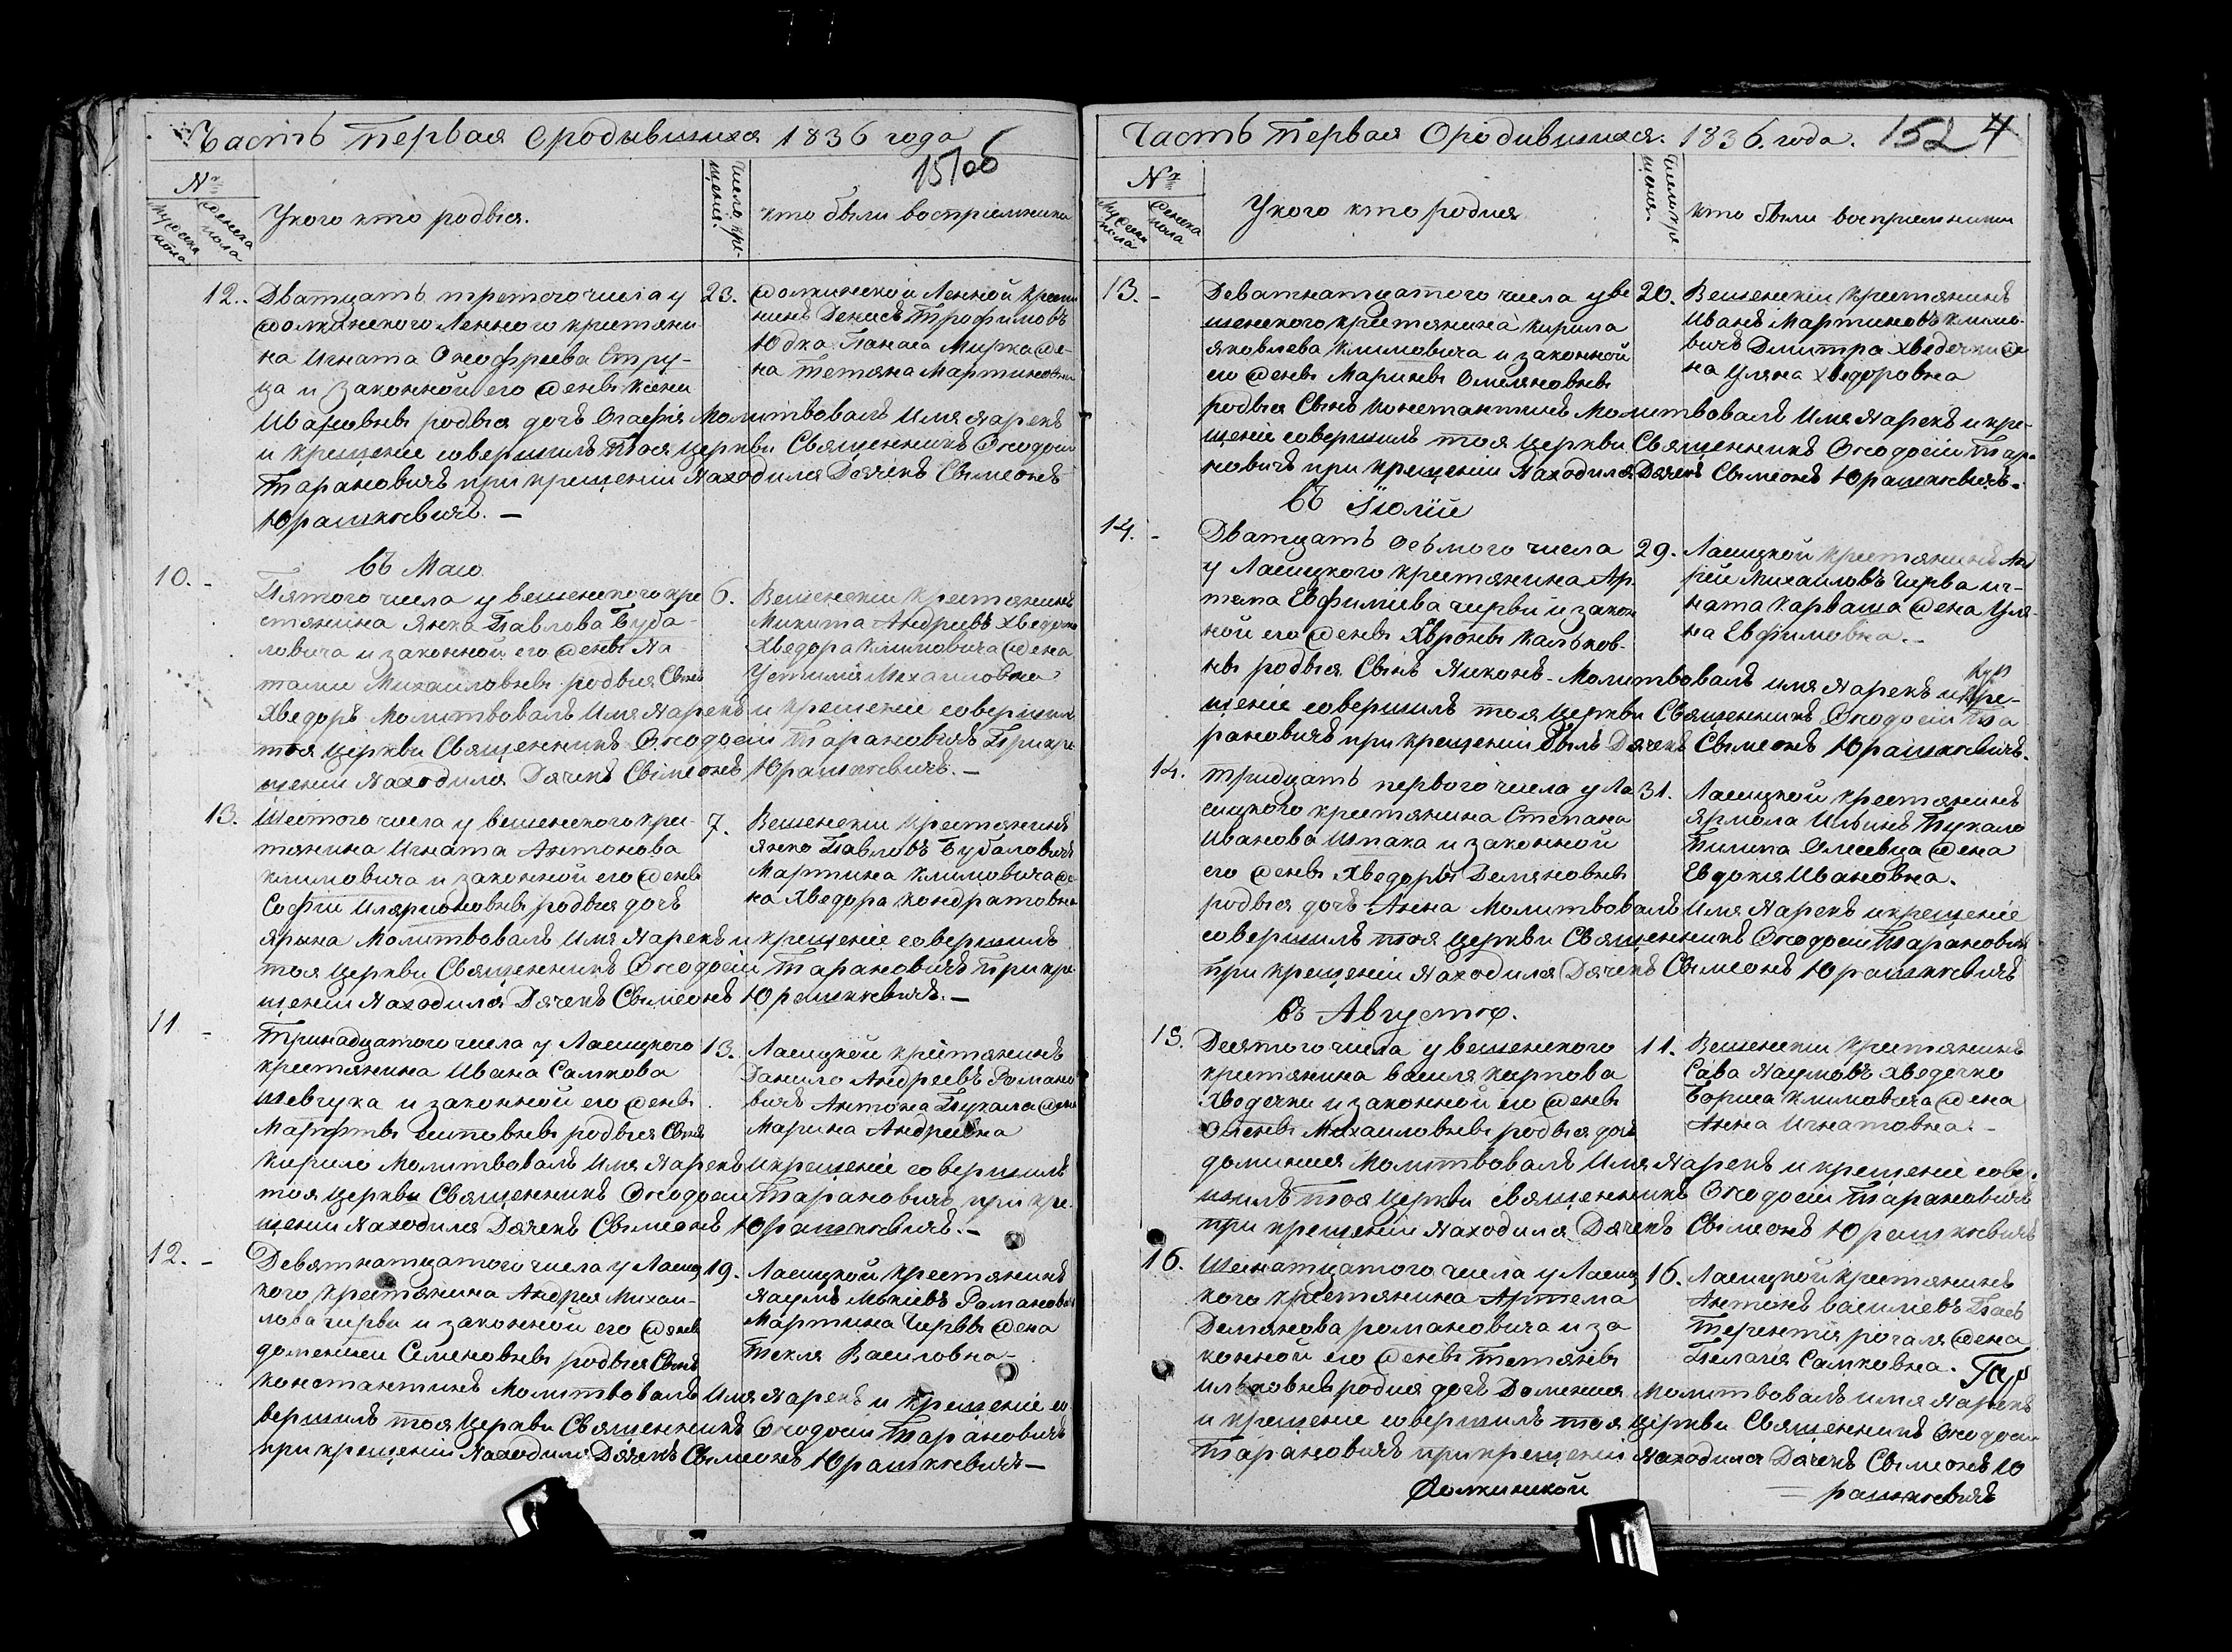 Часть первая о родившихся 1836 года
15106
№
мужеска пола
женска пола
У кого кто родвся.
Число крещения.
кто были восприемники
12. Дватцать третого числа у
жолкинского Ленного крестяни
на Игната Онофреева Стру-
ца и законной его женѣ Ксени
Ивановнѣ родвся дочъ Огафія Молитвовалъ Имя Нарекъ
и крещеніе совершилъ тоя церкви Священникъ Ѳеодосій
Тарановичъ при крещеніи Находился Дячекъ Сѵмеонъ
Юрашкевичъ. —
23. Жолкинской Ленной кресть
нинъ Денисъ Трофимовъ
Юдка Панаса Мирка же-
на Тетяна Мартиновна
въ Маю
10. - Пятого числа у вешенского кре
стянина Янка Павлова Буба-
ловича и законной его женѣ На-
талии Михаиловнѣ родвся Сынъ
Хведоръ Молитвовалъ Имя Нарекъ и крещеніе совершил
тоя церкви Священникъ Ѳеодосій Тарановичъ При кре
щеніи Находился Дячекъ Сѵмеонъ Юрашкевичъ. —
6. Вешенскій крестянинъ
Микита Андреевъ Хведечко
Хведора Климовича жена
Устимія Михаиловна
13. Шестого числа у вешенского крес-
тянина Игната Антонова
климовича и законной его женѣ
Софіи Иляріоновнѣ родвся дочъ
Ярына Молитвовалъ Имя Нарекъ и крещеніе совершилъ
тоя церкви Священникъ Ѳеодосій Тарановичъ При кре-
щеніи Находился Дячекъ Сѵмеонъ Юрашкевичъ. —
7. Вешенскій крестянинъ
Янко Павловъ Бубаловичъ
Мартина Климовича же-
на Хведора Кондратовна
11 - Тринадцатого числа у Ласицкого
крестянина Ивана Самкова
шевчука и законной его женѣ
Марфтѣ Титовнѣ родвся Сынъ
Кирило Молитвовалъ Имя Нарекъ и крещеніе совершилъ
тоя церкви Священникъ Ѳеодосій Тарановичъ при кре-
щеніи Находился Дячекъ Сѵмеонъ Юрашкевичъ. —
13. Ласицкой крестянинъ
Данило Андреевъ Романо
вичъ Антона Пукала жена
Марина Андреевна
12. - Девятнатцатого числа у Ласиц
кого крестянина Андрея Михаи-
лова черви и законной его женѣ
доменіи Семеновнѣ родвся Сынъ
Константинъ Молитвовалъ Имя Нарекъ и крещеніе со
вершилъ тоя церкви Священникъ Ѳеодосій Тарановичъ
при крещеніи Находился Дячекъ Сѵмеонъ Юрашкевичъ —
19. Ласицкой крестянинъ
Наумъ Романовичъ
Мартина Червы жена
Текля Василовна-
Часть первая О родившихся. 1836. года. 152 4
№
мужеска пола
женска пола
У кого кто родися
Число крещения.
кто были восприемники
13. - Деватнатцатого числа у ве
шенского крестянина кирила
яковлева климовича и законной
его женѣ Маринѣ Омеляновнѣ
родвся Сынъ Константинъ Молитвовалъ Имя Нарекъ и кре-
щеніе совершилъ тоя церкви Священникъ Ѳеодосій Тара
новичъ при крещеніи Находился Дячекъ Сѵмеонъ Юрашкевичъ.
20. Вешенскій крестянинъ
Иванъ Мартиновъ климо-
вичъ Дмитра Хведечки же
на Уляна Хведоровна
въ Іюлій
14. - Дватцать осьмого числа
у Ласицкого крестянина Ар
тема Евфиміева черви и закон
ной его женѣ Хвронѣ Калѣков-
нѣ родвся Сынъ Никонъ. Молитвовалъ имя Нарекъ и кре-
щеніе совершилъ тоя церкви Священникъ Ѳеодосій Та
рановичъ при крещеніи былъ Дячекъ Сѵмеонъ Юрашкевичъ.
29. Ласицкой крестянинъ Анд
рей Михаиловъ Черва иг-
ната Карваша жена Уля-
на Евфимовна. -
14. тридцать первого числа у Ла
сицкого крестянина Степана
Иванова Ипака и законной
его женѣ Хведорѣ Демяновнѣ
родвся дочъ Анна Молитвовалъ Имя Нарекъ и крещеніе
совершилъ тоя церкви Священникъ Ѳеодосій Тарановичъ
при крещеніи Находился Дячекъ Сѵмеонъ Юрашкевичъ
31. Ласицкой крестянинъ
Ярмола Ильинъ Пукало
Пилипа жена
Евдокия Ивановна.
въ Августѣ.
15. Десятого числа у вешенского
крестянина василя карпова
Хведечки и законной его женѣ
Оленѣ Михаиловнѣ родвся дочъ
доминия Молитвовалъ Имя Нарекъ и крещеніе совер-
шилъ тоя церкви священникъ Ѳеодосій Тарановичъ
при крещеніи Находился Дячекъ Сѵмеонъ Юрашкевичъ
11. Вешенскій крестянинъ
Сава Наумовъ хведечко
Бориса климовича жена
Анна Игнатовна. -
16. Шеснатцатого числа у Ласиц
кого крестянина Артема
Демянова романовича и за
конной его женѣ Тетянѣ
Ильковнѣ родися дочъ Домения Молитвовалъ имя Нарекъ
и крещеніе совершилъ тоя церкви Священникъ Ѳеодосій
Тарановичъ при крещеніи Находился Дячекъ Сѵмеонъ Ю
рашкевичъ
16. Ласицкой крестянинъ
Антонъ василіевъ
Терентія рогаля жена
Пелагія Самковна.
Жолкинской